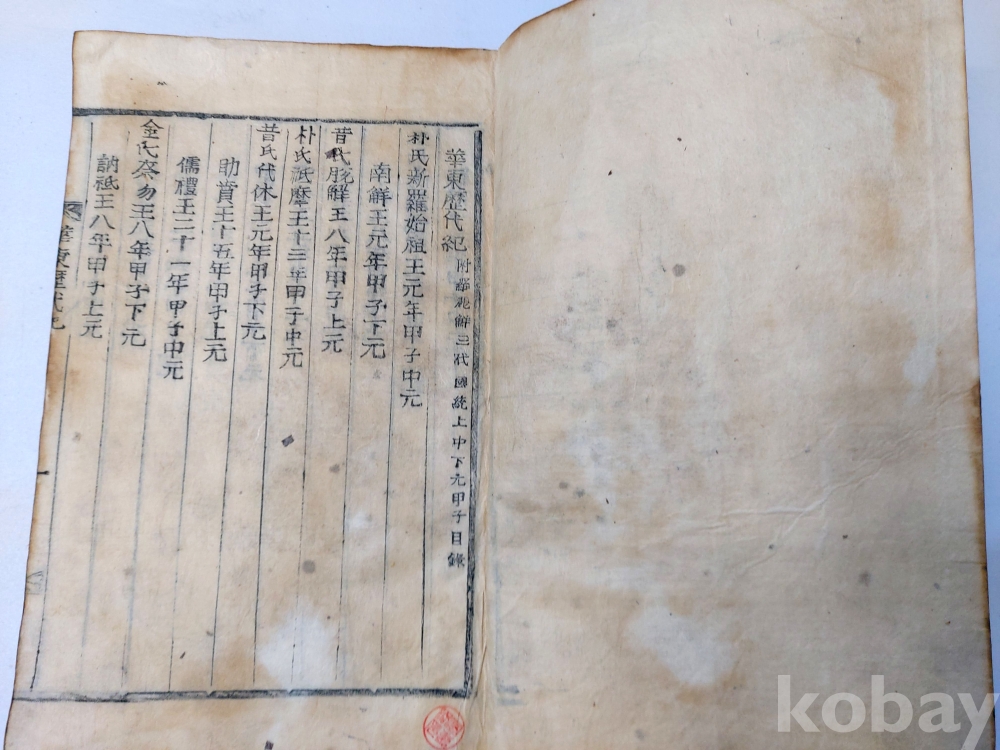 華東歷代紀 附羅麗鮮三代國統上中下元甲子目錄
朴氏新羅始祖王元年甲子中元
南解王元年甲子下元
昔氏脫解王八年甲子上元
朴氏祗摩王十三年甲子中元
昔氏伐休王元年甲子下元
助賁王十五年甲子上元
儒禮王二十一年甲子中元
金氏奈勿王八年甲子下元
訥祗王八年甲子上元
華東歷代紀
kobay